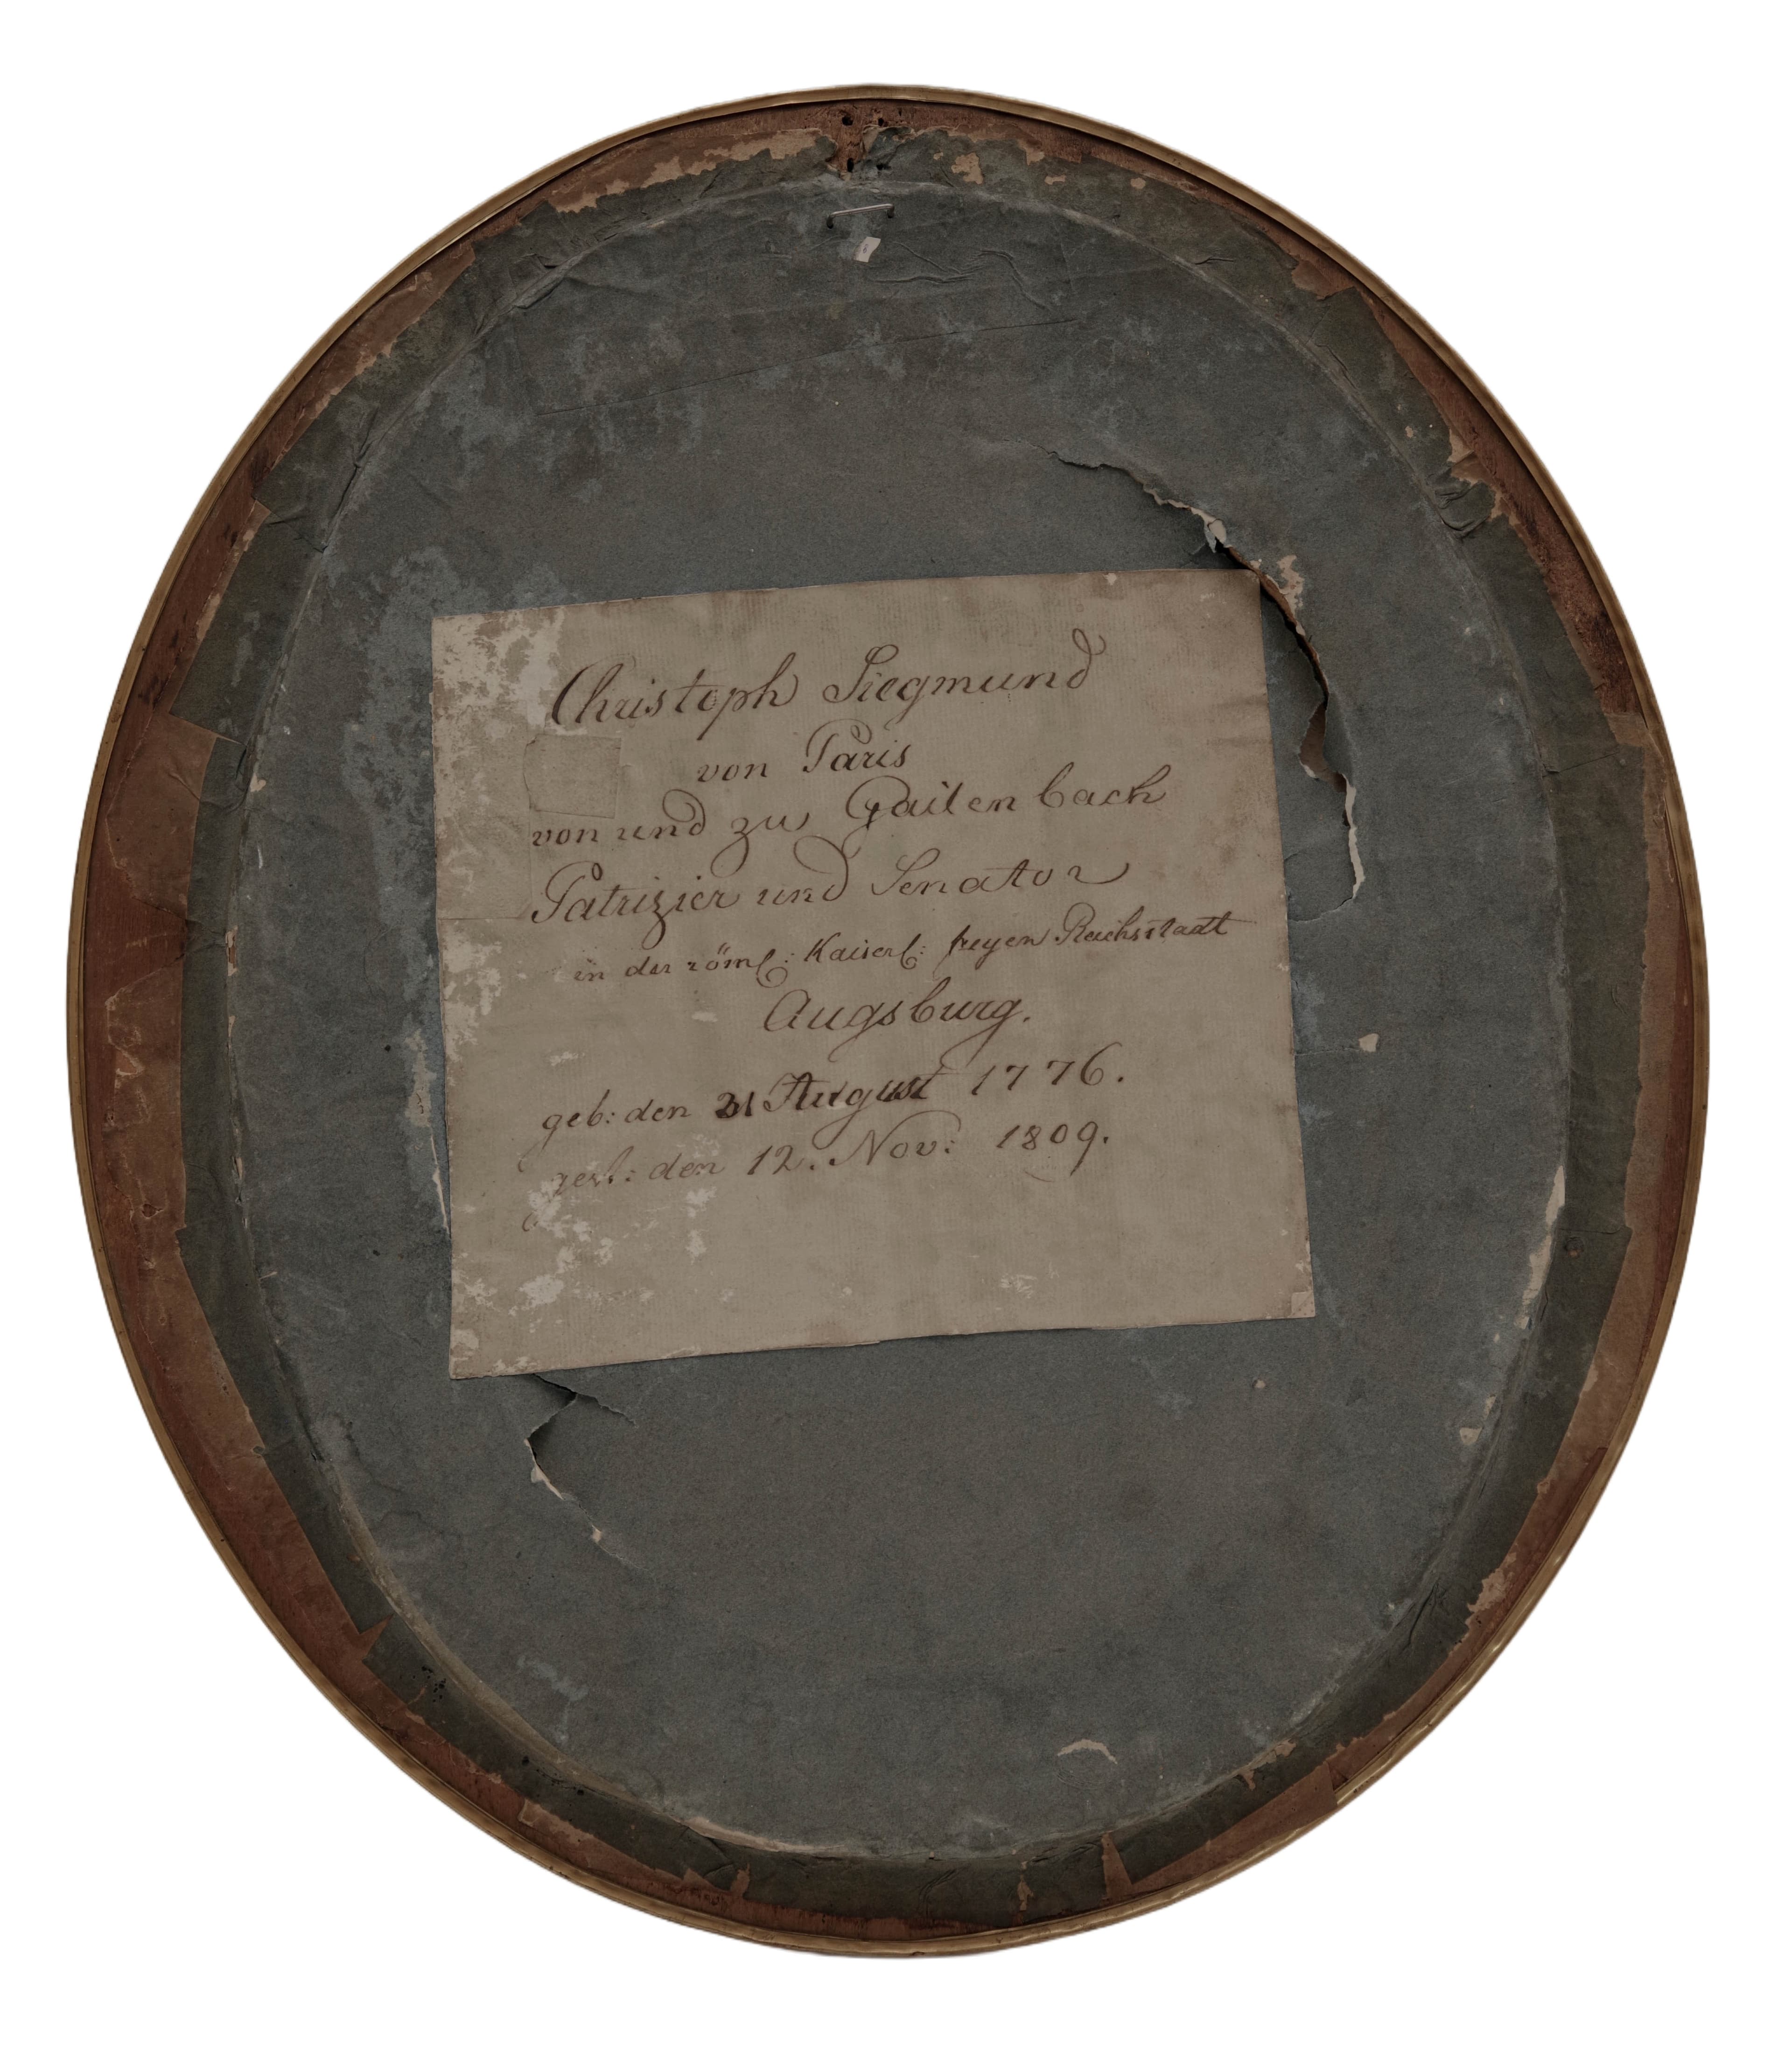 Christoph Siegmund
von Paris
von und zu Gailenbach
Patrizier und Senator
in der röml: Kaiserl: freyen Reichsstadt
Augsburg.
geb: den 21 August 1776.
gest: den 12. Nov: 1809.